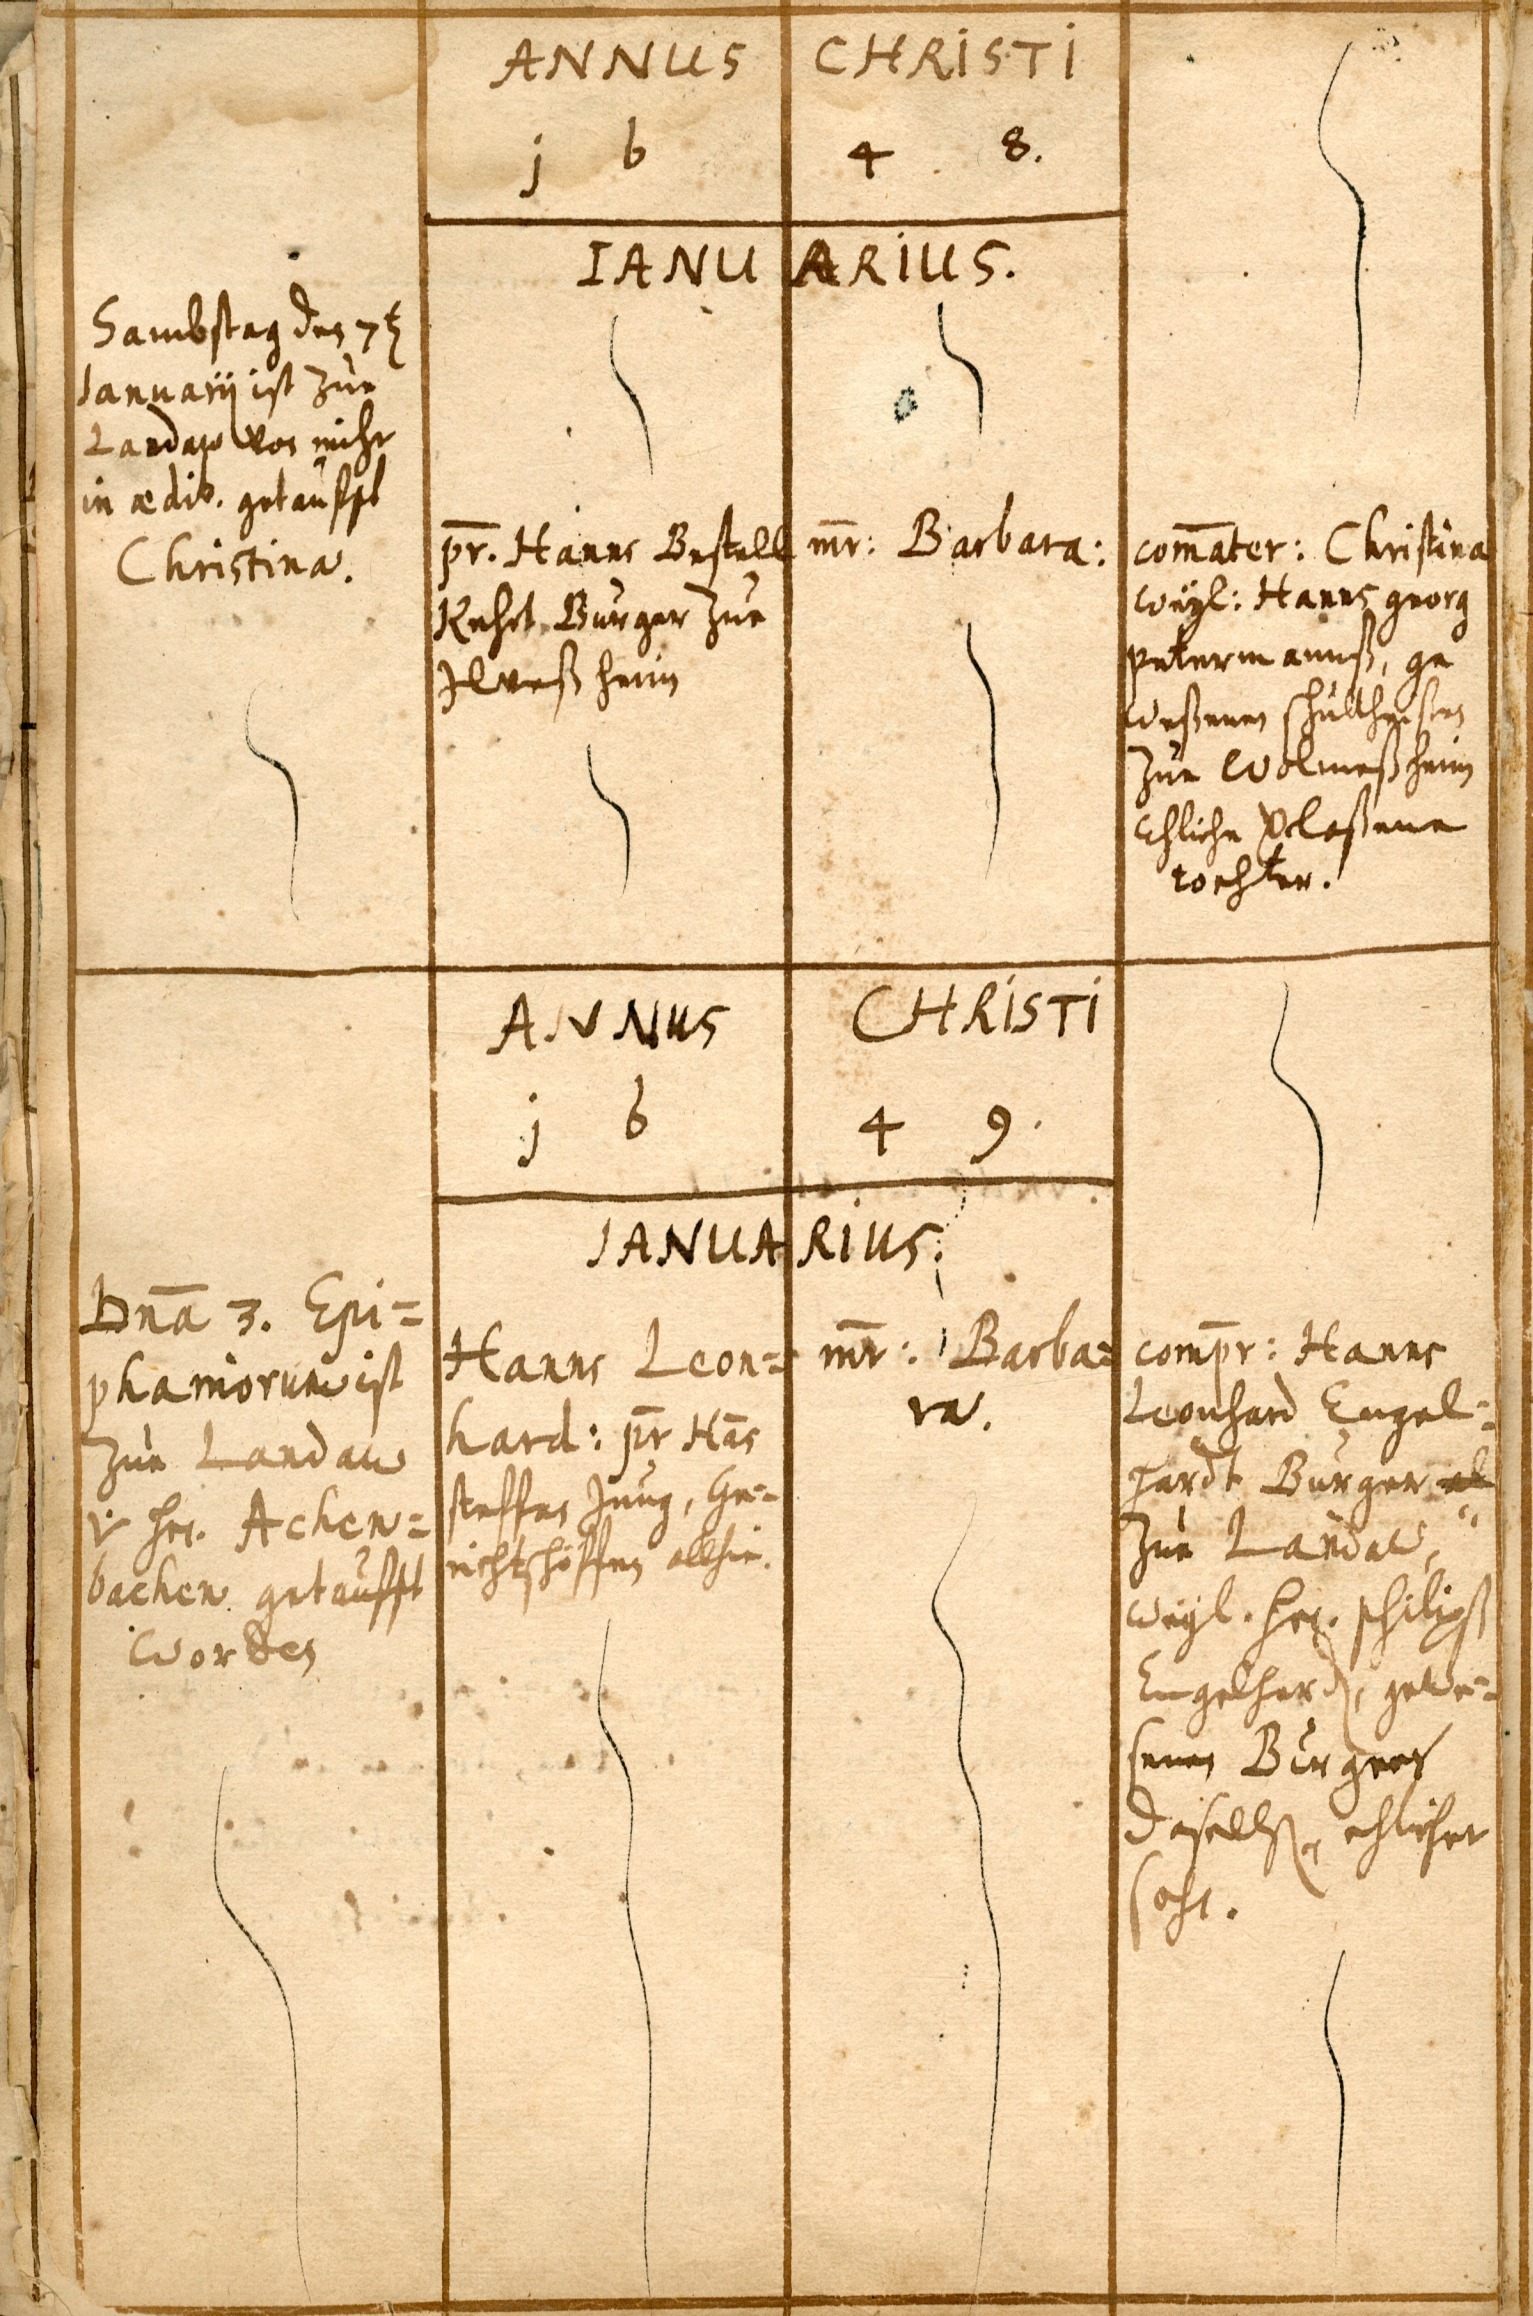 ANNUS CHRISTI
j 6 4 8.
IANUARIUS.
Sambstag den 7t
Januarij ist zue
Landaw von mihr
in ædib. getaufft
Christina.
pr. Hanns Bestell
Burger zue
Ilveßheim
mr: Barbara:
comater: Christina
weyl: Hanns georg
petermannß, ge
weßenen schultheisen
zue Wolmeßheim
Ehliche vlaßene
tochter.
ANNUS CHRISTI
j 6 4 9.
JANUARIUS.
Dnã 3. Epi=
phaniorum ist
zue Landau
v hr. Achen=
bachen getaufft
worden
Hanns Leon=
hard: pr Hãs
steffan Jung, Ge=
richtshöffen allhie.
mr: Barba=
ra.
compr: Hanns
Leonhard Engel=
hardt Burger
zue Landaw,
weyl. hr. philipß
Engelhard, gewe=
senen Burgers
daselbst, ehlicher
sohn.